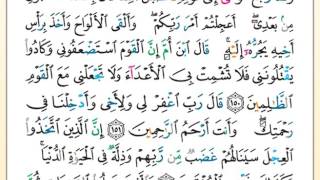 مِنۢ بَعْدِىٓ ۖ أَعَجِلْتُمْ أَمْرَ رَبِّكُمْ ۖ وَأَلْقَى ٱلْأَلْوَاحَ وَأَخَذَ بِرَأْسِ
أَخِيهِ يَجُرُّهُۥٓ إِلَيْهِ ۚ قَالَ ٱبْنَ أُمَّ إِنَّ ٱلْقَوْمَ ٱسْتَضْعَفُونِى وَكَادُوا۟
يَقْتُلُونَنِى فَلَا تُشْمِتْ بِىَ ٱلْأَعْدَآءَ وَلَا تَجْعَلْنِى مَعَ ٱلْقَوْمِ
ٱلظَّٰلِمِينَ ١٥٠ قَالَ رَبِّ ٱغْفِرْ لِى وَلِأَخِى وَأَدْخِلْنَا فِى
رَحْمَتِكَ ۖ وَأَنتَ أَرْحَمُ ٱلرَّٰحِمِينَ ١٥١ إِنَّ ٱلَّذِينَ ٱتَّخَذُوا۟
ٱلْعِجْلَ سَيَنَالُهُمْ غَضَبٌ مِّن رَّبِّهِمْ وَذِلَّةٌ فِى ٱلْحَيَوٰةِ ٱلدُّنْيَا ۚ